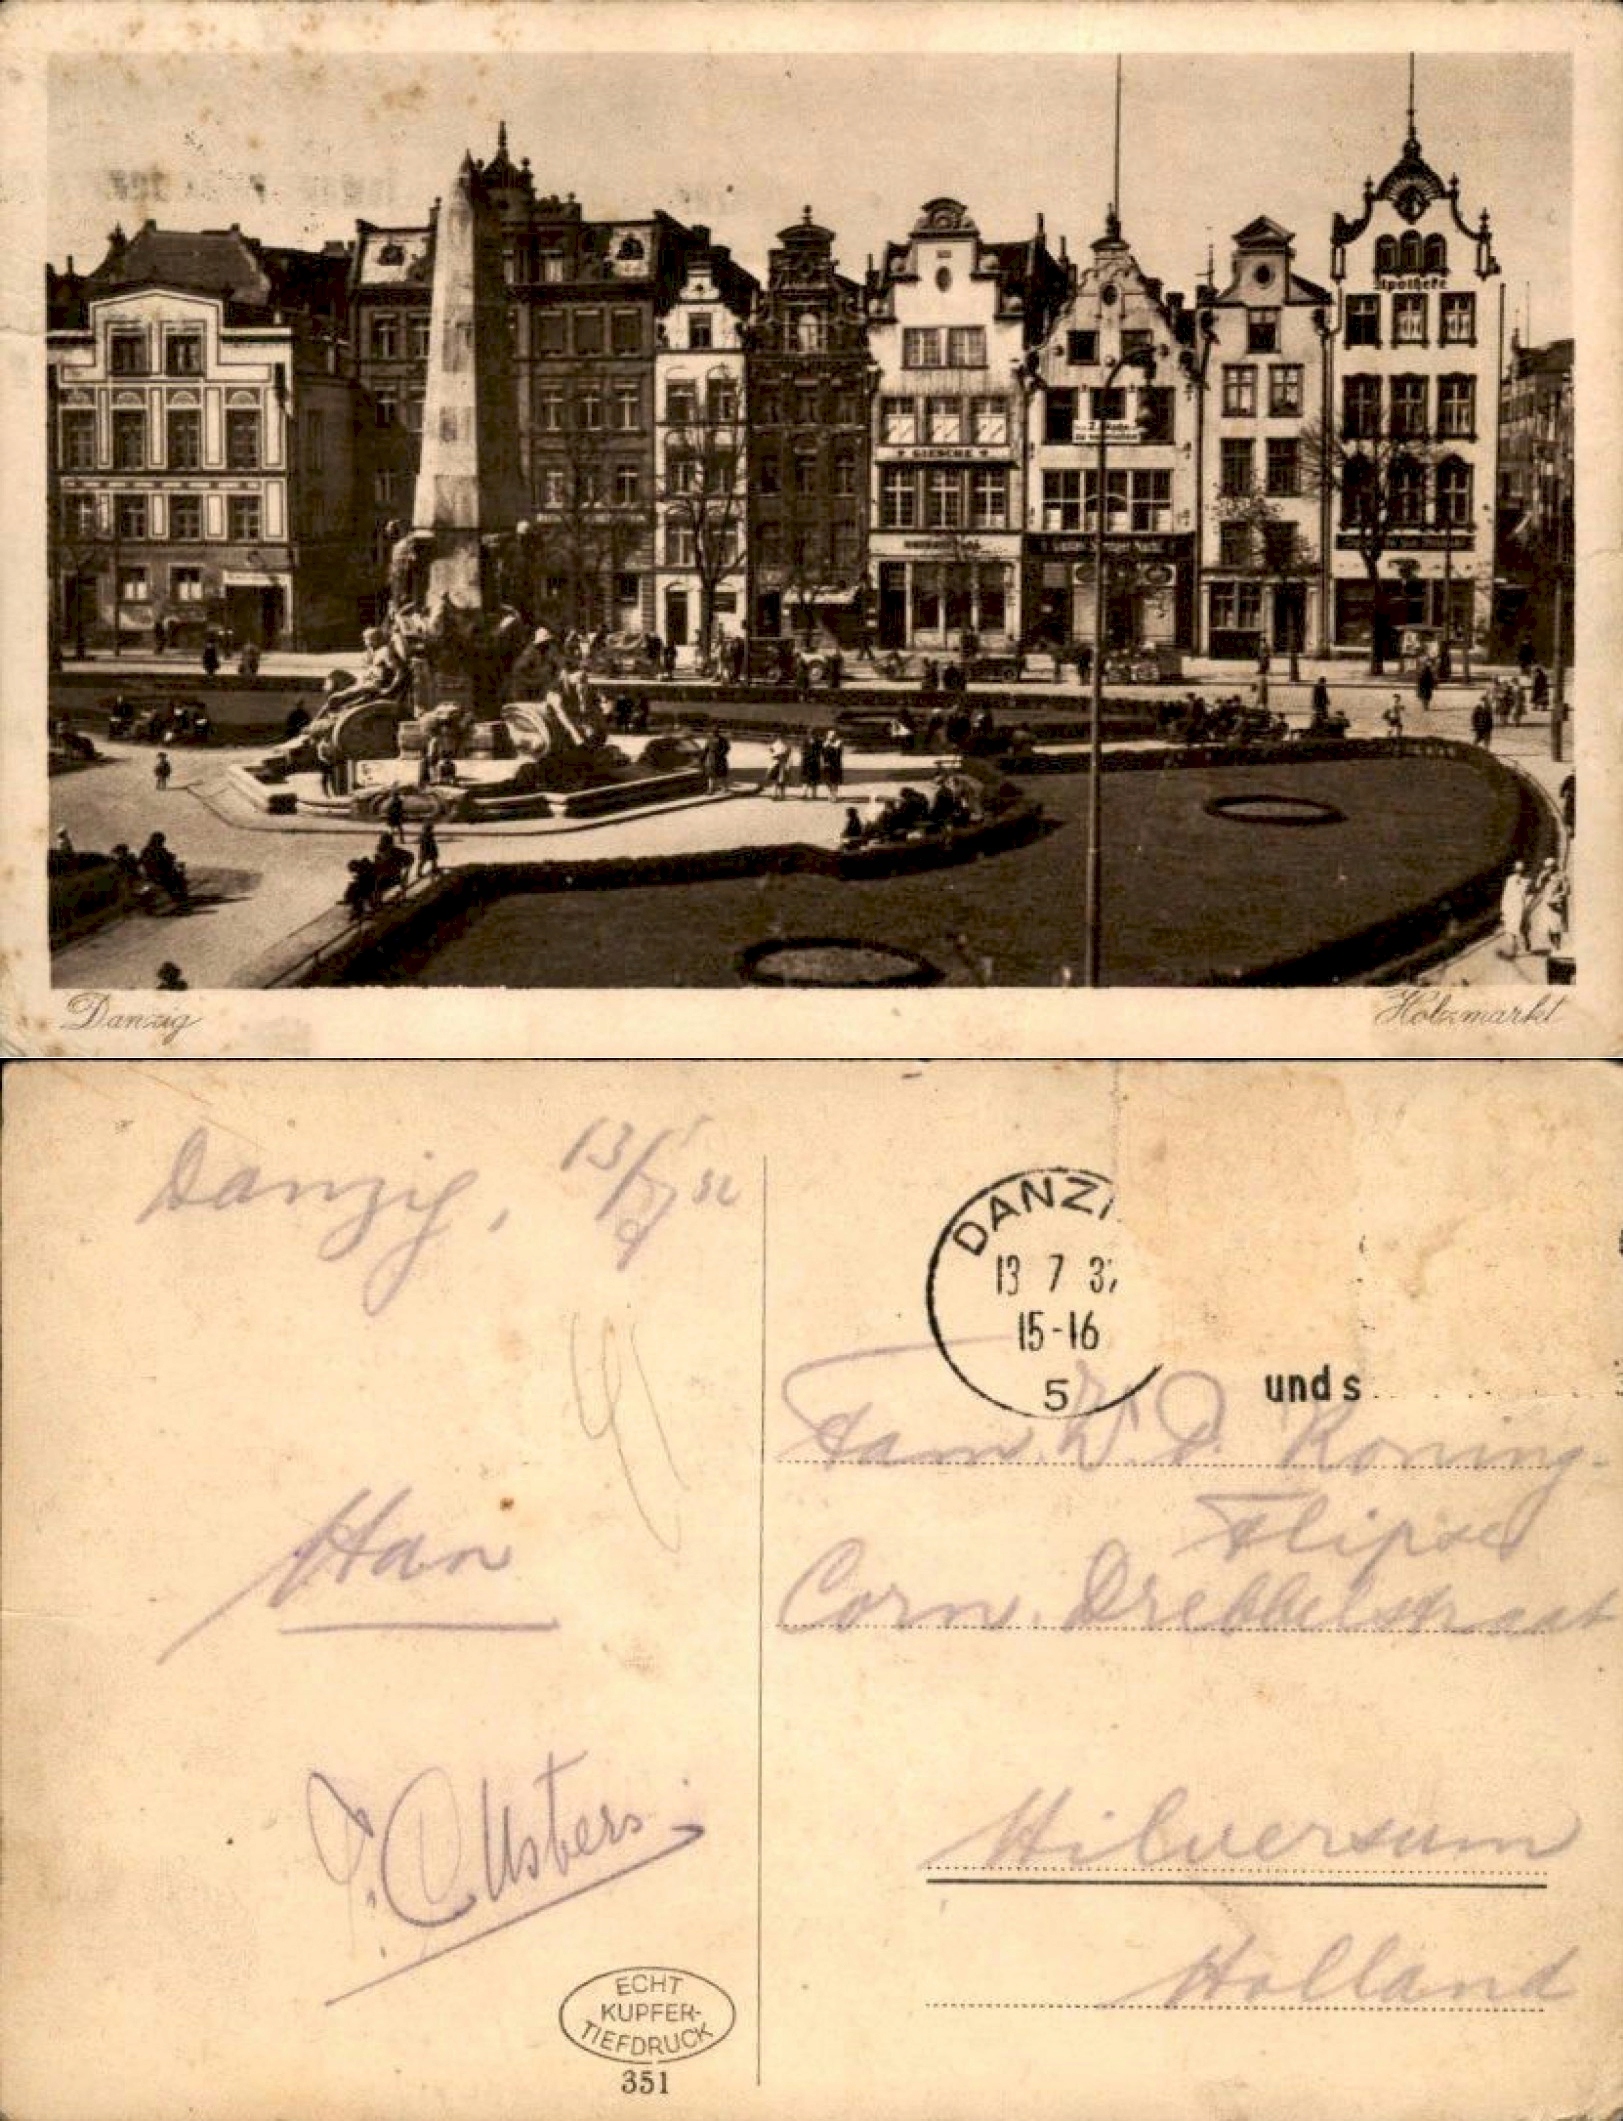 Apotheke
GIESCHE
Danzig
Holzmarkt
Danzig, 13/7 32
DANZI
13 7 3
15-16
5
und s
Fam. W. P. Koning-
Flipse
Corn. Drebbelstraat
Han
Hilversum
Holland
ECHT
KUPFER-
TIEFDRUCK
351